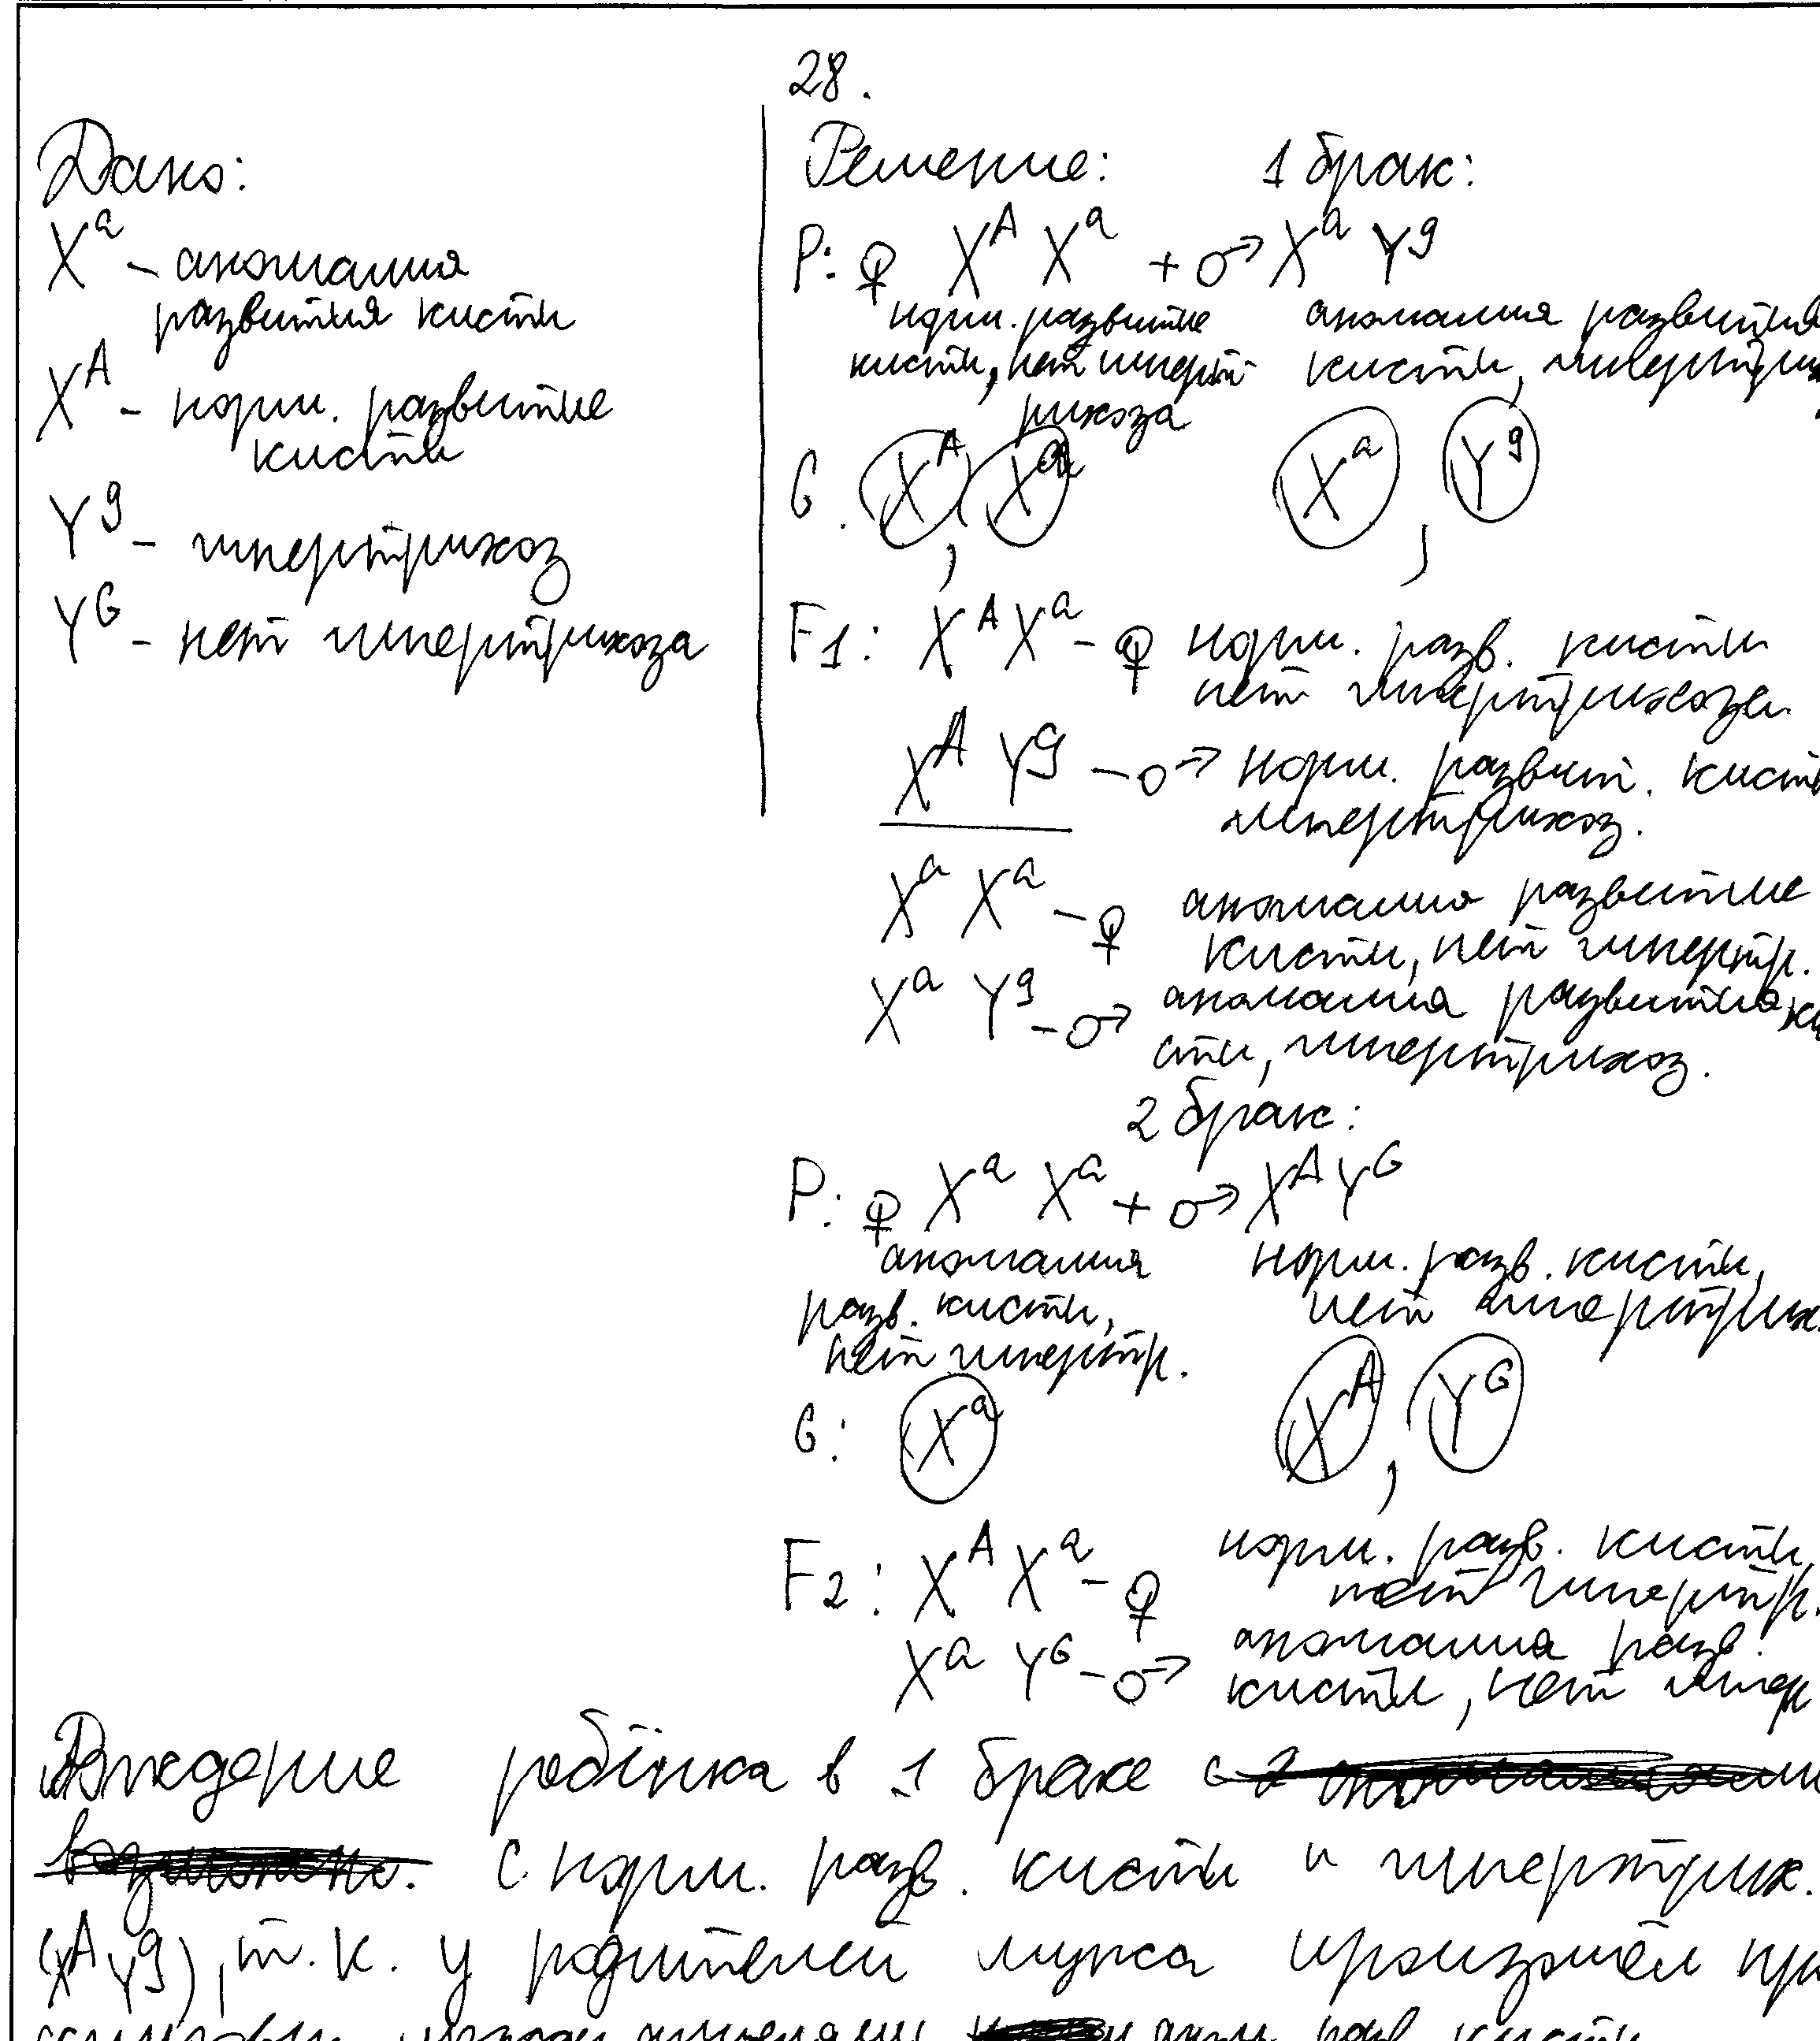 28.
Дано:
X^a - аномалия
развития кисти
X^A - норм. развитие
кисти
Y^g - гипертрихоз
Y^G - нет гипертрихоза
Решение: 1 брак:
P: ♀ X^A X^a + ♂ X^a Y^g
норм. развитие аномалия развития
кисти, нет гиперт кисти,
рихоза
G. X^A, X^a X^a, Y^g
F1: X^A X^a - ♀ норм. разв. кисти
нет гипертрихоза
X^A Y^g - ♂ норм. развит.
гипертрихоз.
X^a X^a - ♀ аномалия развитие
кисти, нет гипертр.
X^a Y^g - ♂ аномалия развития ки
сти, гипертрихоз.
2 брак:
P: ♀ X^a X^a + ♂ X^A Y^G
аномалия норм. разв. кисти,
разв. кисти, нет гипертрих.
нет гипертр.
G: X^a X^A, Y^G
F2: X^A X^a - ♀ норм. разв. кисти,
нет гипертр.
X^a Y^G - ♂ аномалия разв.
кисти, нет гипер
ребёнка в 1 браке
с норм. разв. кисти и гипертрих.
(X^A Y^g), т.к. у родителей мужа произошёл
разв. кисти